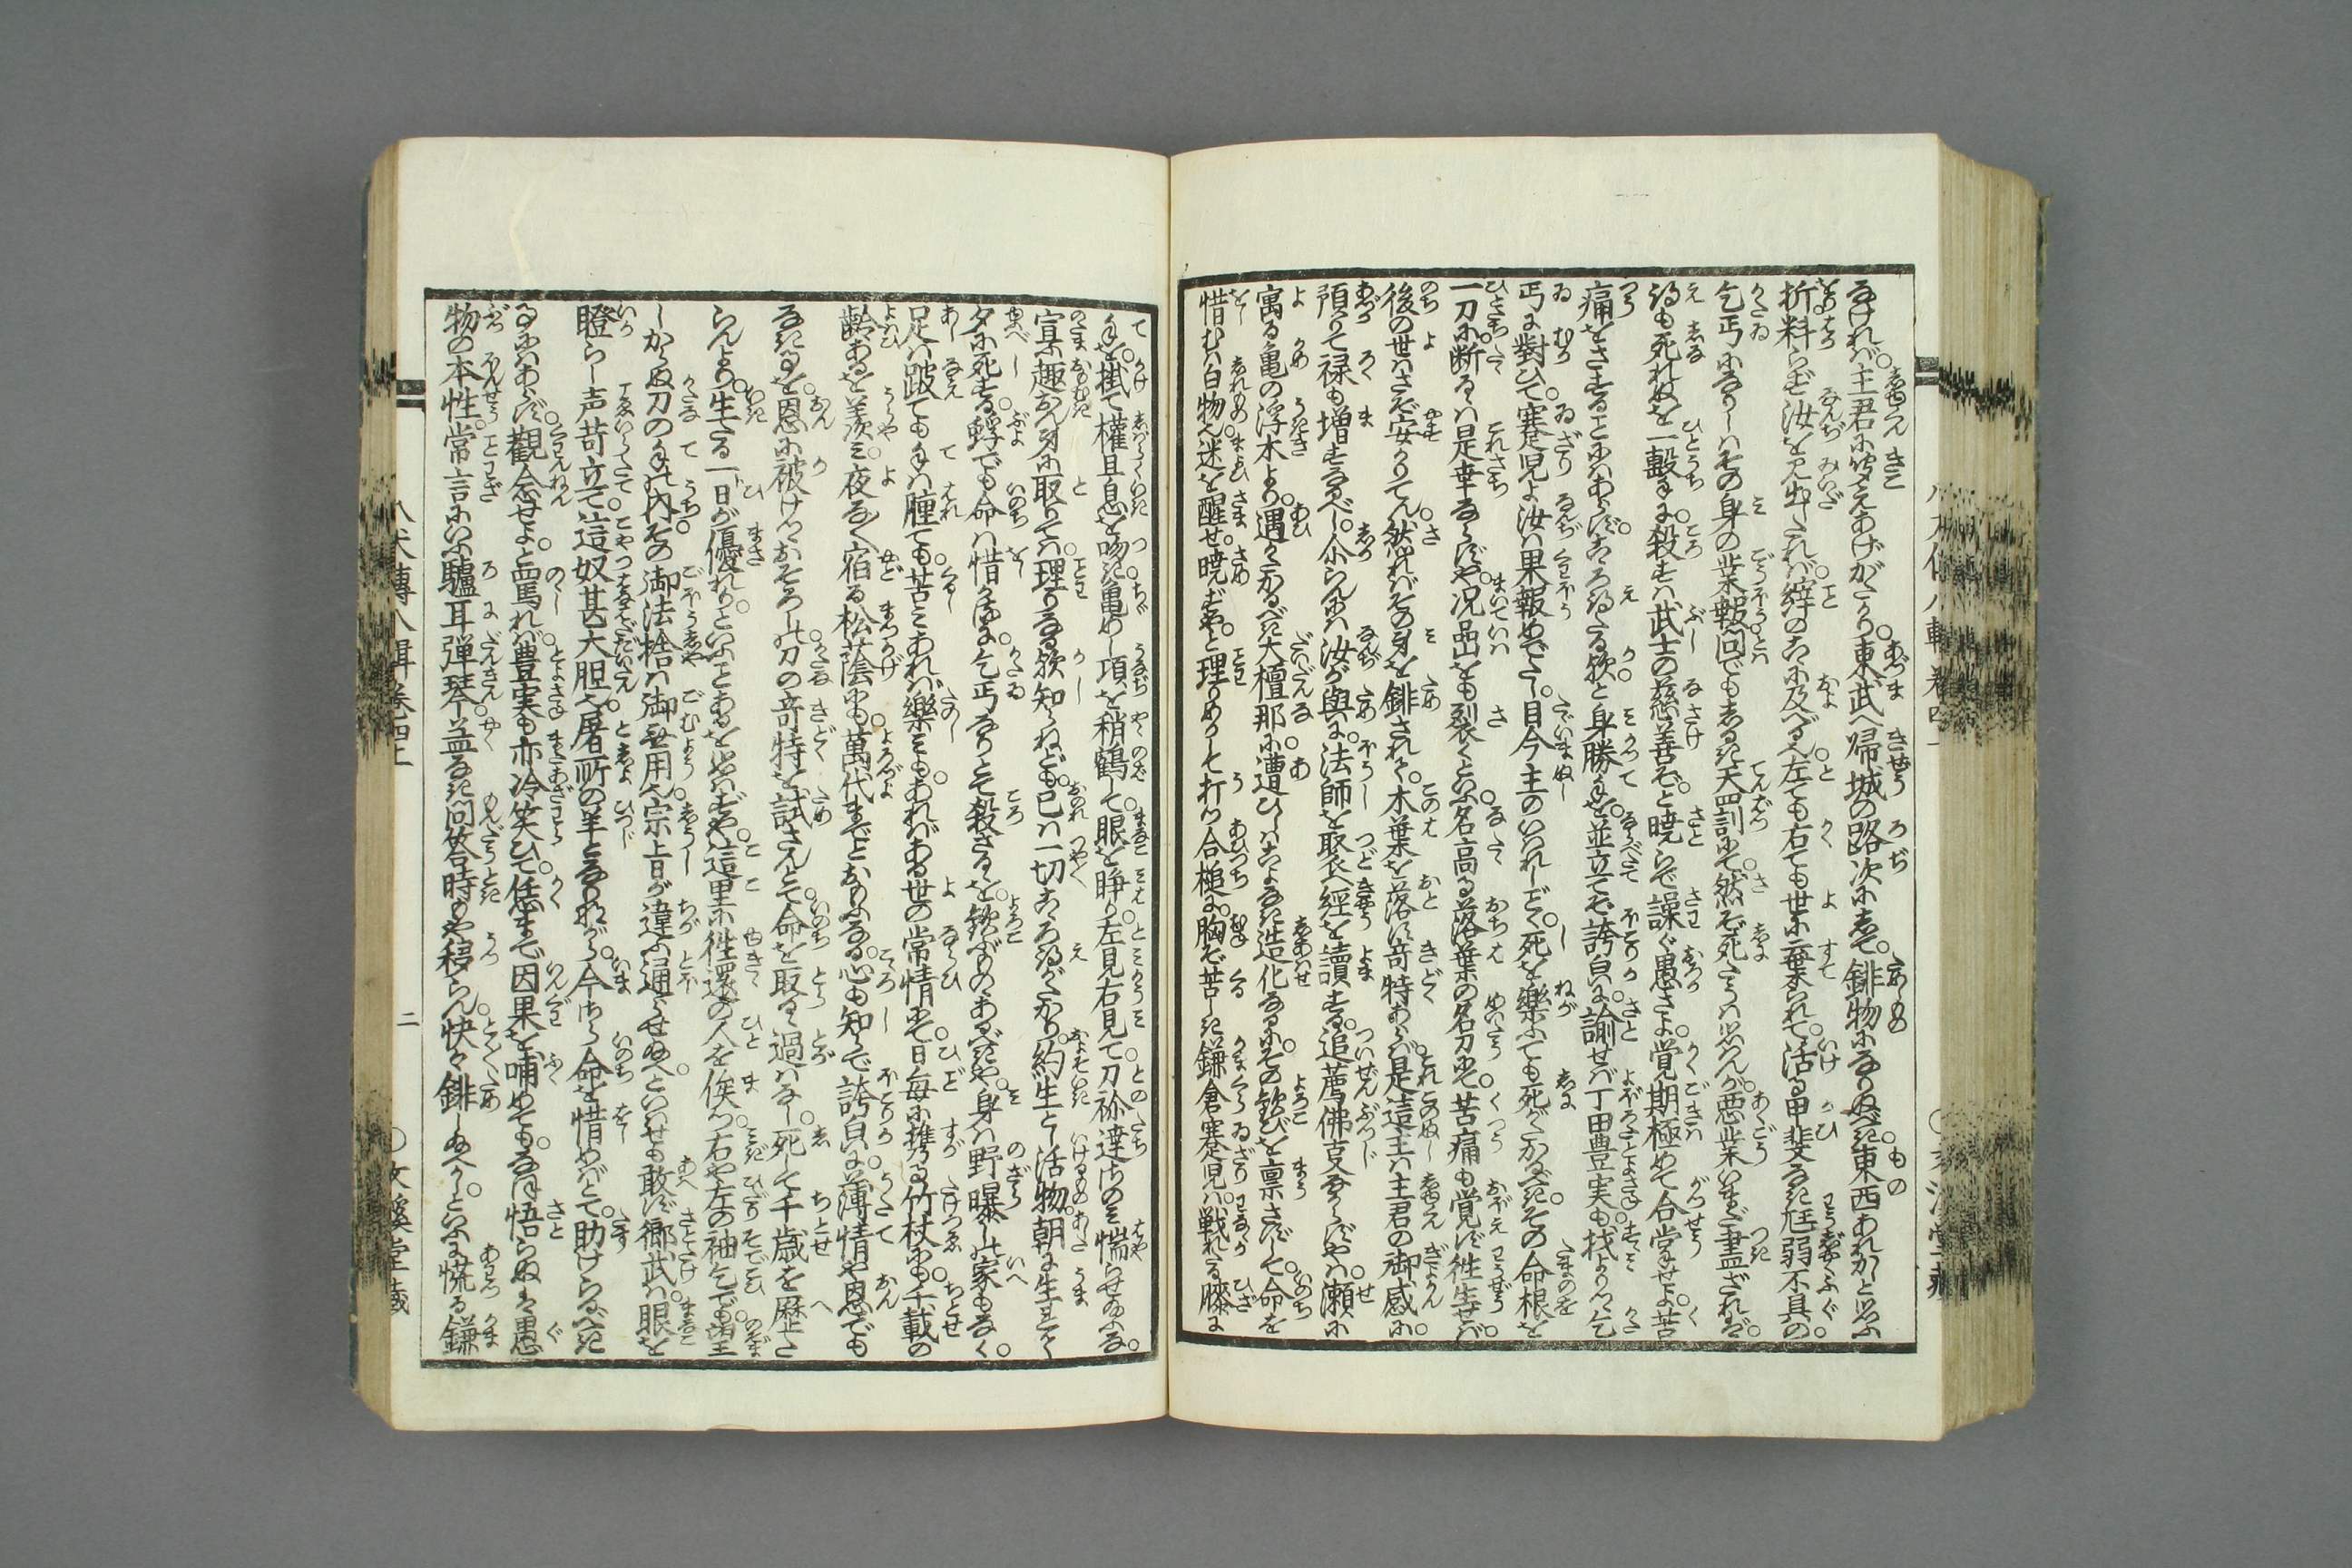 なければ。主君に聞えあげがたかり。東武へ帰城の路次にして。錐物になりぬべき東西あれかしと思ふ
折料らず汝を見出たれば。縡のこゝに及べる也。左ても右ても世に棄られて。活る甲斐なき尩弱不具の
乞丐になりしはその身の業報。問でもしるき天罰にて。然ぞ死たうは思はんが。悪業いまだ盡ざれば。
得も死れぬを一撃に。殺すは武士の慈善ぞと暁らで譟ぐ愚さよ。覚期極めて合掌せよ。苦
痛をさすることにはあらず。こゝろ得たる歟と身勝手を。並立てぞ誇皃に。諭せば丁田豊実も。找よりつゝ乞
丐に對ひて。蹇児よ汝は果報めでたし。目今主のいはれしごとく。死を樂ふても死がたかるべき。その命根を
一刀に。断るゝは是幸ならずや。况品出をも裂くといふ。名高る落葉の名刀にて。苦痛も覚ず往生せば。
後の世はさぞ安かりてん。然ればその身を錐されて。木葉を落す奇特あらば。是這主は主君の御感に
預りて禄も増すなるべし。尓らんには汝が與に。法師を聚合經を讀する。追薦佛叓ならずや。瀬に
寓る亀の浮木より。遇がたかるべき大檀那に。遭ひしはこよなき造化なるに。その歓びを禀さずして。命を
惜むは白物也。迷を醒せ。暁ずやと。理りめかして打つ合槌に。胸ぞ苦しき鎌倉蹇児は。戦れる膝に
手を掛て。權且息を吻き亀めし。項を稍鶴して眼を睁り。左見右見て。刀祢達はのみ惴らせ給ふな。
宣ふ趣おん身に取りては。理りなる歟知らねども。己は一切こゝろ得がたかり。約生としし活物。朝に生れて
夕に死する。蜉でも命は惜かるに。乞丐なりとて殺さるゝを。歓ぶものあるべきや。身は野曝しの家もなく。
足は跛ても手は腫ても。苦みあれば樂みもあればある世の常情にて。日毎に携る竹杖にも。千載の
齢あるを羨み。夜なく宿る松蔭にも。萬代までとおもふなる。心も知らで誇皃に。薄情や恩でも
なきことを。恩に被けつゝおそろしの刀の奇特を試さんとて。命を取るゝ過はなし。死して千歳を歴た
らんより。生たる一日が優れりと。いふことあるを思はずや。這里に往還の人を俟つ。右や左の袖乞でも。望
しからぬ刀の手の内。その御法捨は御無用。宗旨が違ふ通らせ給へ。といはせも敢ず。郷武は。眼を
瞪らし声苛立て。這奴甚大胆也。屠所の羊となりながら。今はた命を惜めばとて。助けらるべき
ものにはあらず。觀念せよと罵れば。豊実も亦冷笑ひて。恁まで因果を哺めても。なほ悟らぬは愚
物の本性。常言にいふ驢耳弾琴。益なき問答時もや移らん。快々錐し給へかし。といふに慌る鎌
八犬傳八輯巻四上
二
文溪堂藏